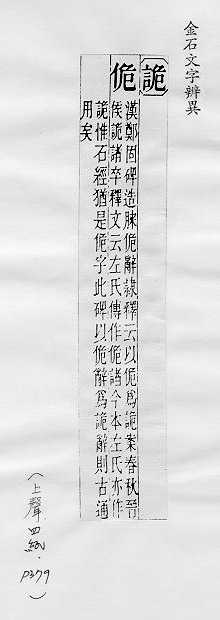 金石文字辨異
詭
佹
漢鄭固碑造膝佹辭隸釋云以佹為詭案春秋晉
侯詭諸卒釋文云左氏傳作佹諸今本左氏亦作
詭惟石經猶是佹字此碑以佹辭為詭辭則古通
用矣
(上聲四紙.
P379)